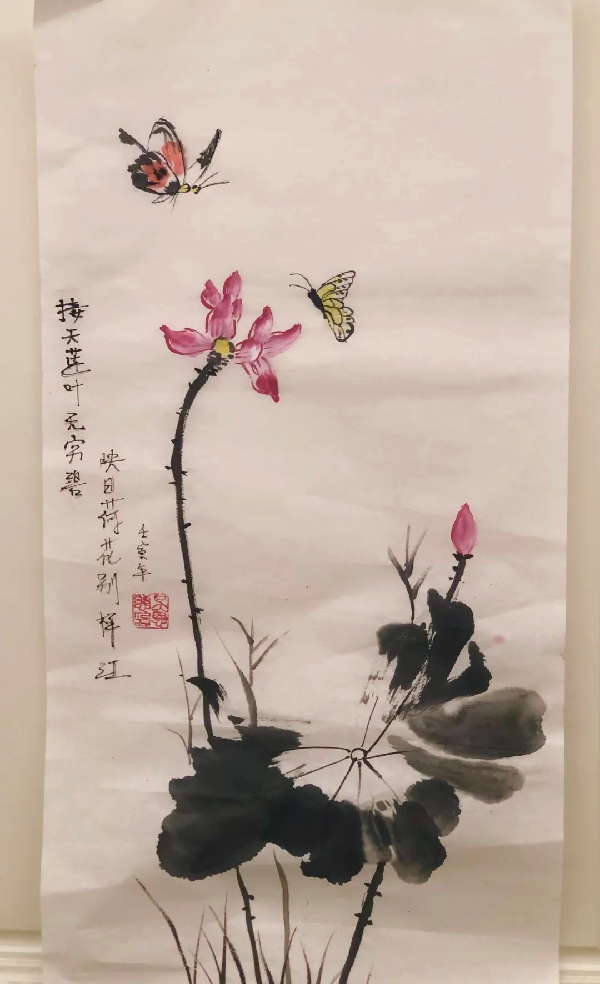 接天莲叶无穷碧
映日荷花别样红
壬寅年